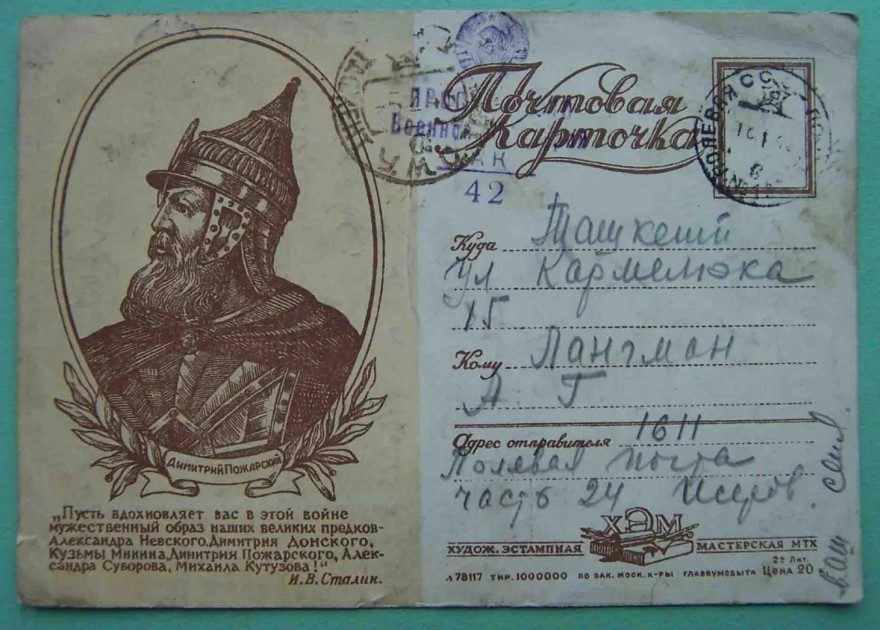 Димитрий Пожарский
„Пусть вдохновляет вас в этой войне
мужественный образ наших великих предков-
Александра Невского, Димитрия Донского,
Кузьмы Минина, Димитрия Пожарского, Алек-
сандра Суворова, Михаила Кутузова!"
И.В. Сталин.
Почтовая
Карточка
Военной
42
Куда Ташкент
ул Кармелюка
15
Кому Лангман
А Г
Адрес отправителя 1611
Полевая почта
часть 24
ХЭМ
ХУДОЖ. ЭСТАМПНАЯ МАСТЕРСКАЯ МТХ
Л78117 ТИР. 1000000 ПО ЗАК. МОСК. К-РЫ ГЛАВБУМСБЫТА Цена 20 к